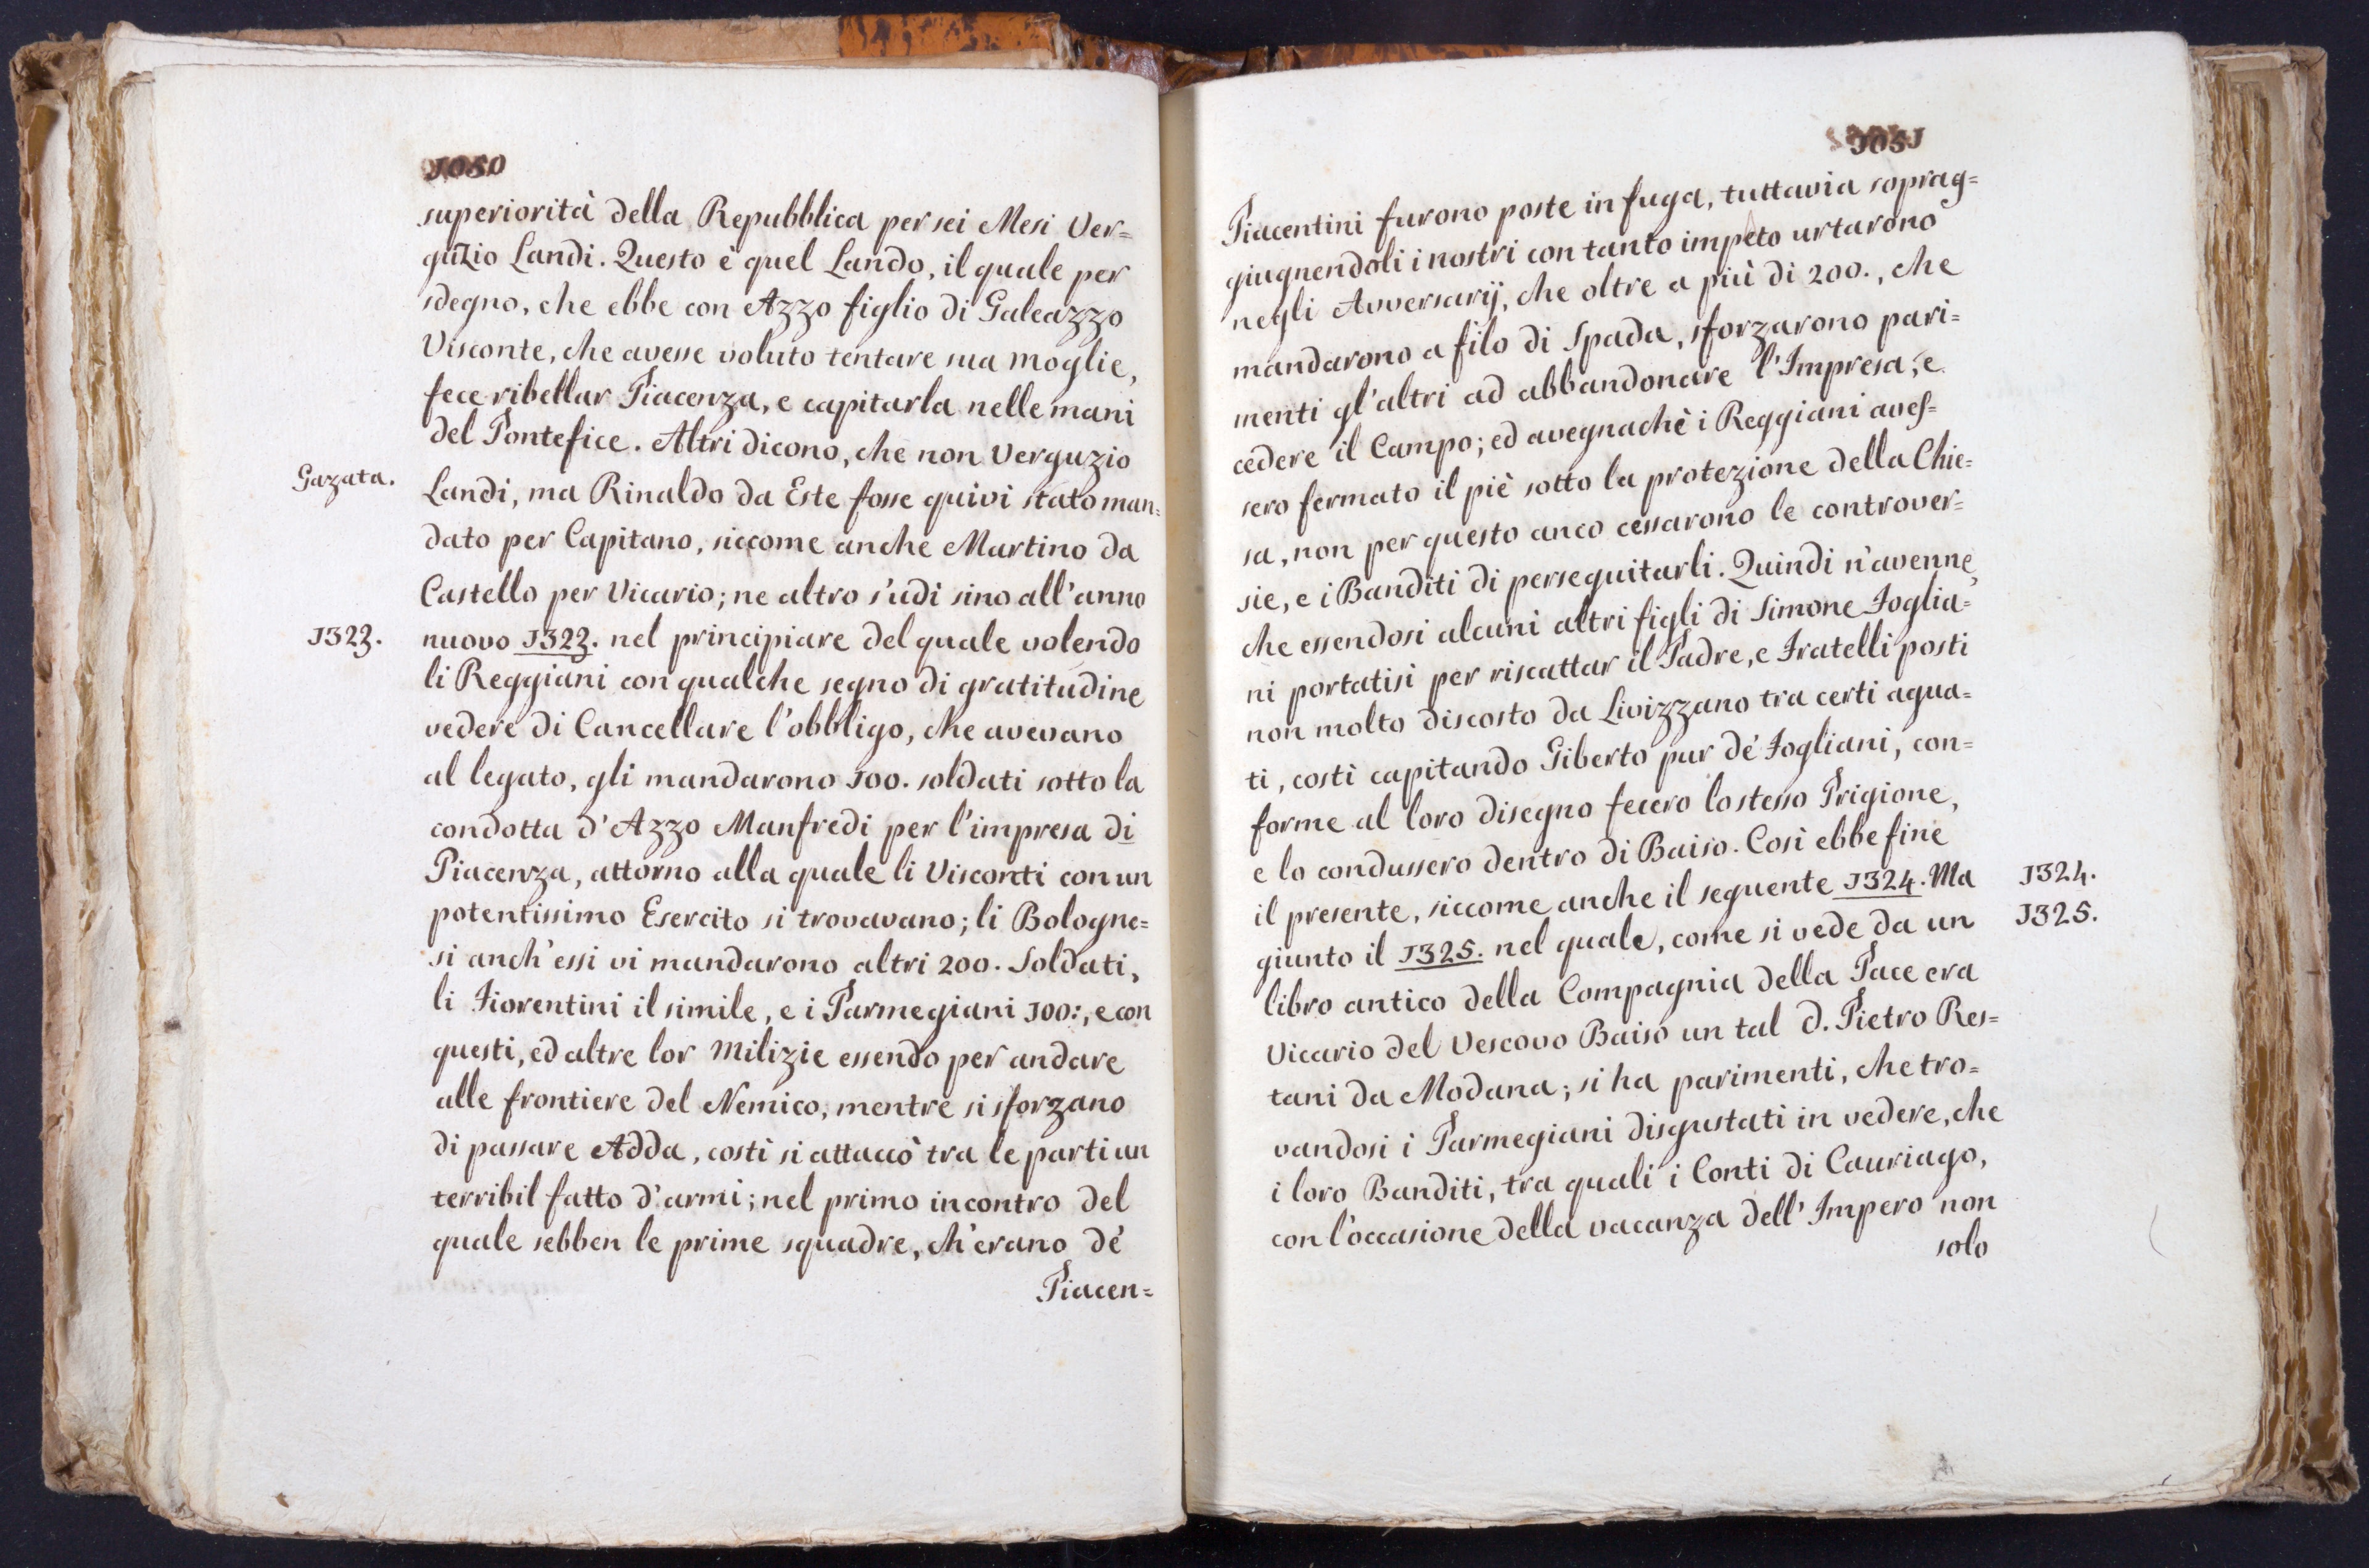 1050
superiorità della Repubblica per sei Mesi Ver=
guzio Landi. Questo è quel Lando, il quale per
sdegno, che ebbe con Azzo figlio di Galeazzo
Visconte, che avesse voluto tentare sua moglie,
fece ribellar Piacenza, e capitarla nelle mani
del Pontefice. Altri dicono, che non Verguzio
Gazata.
Landi, ma Rinaldo da Este fosse quivi stato man=
dato per Capitano, siccome anche Martino da
Castello per Vicario; ne altro s'udi sino all'anno
1323.
nuovo 1323. nel principiare del quale volendo
li Reggiani con qualche segno di gratitudine
vedere di Cancellare l'obbligo, che avevano
al legato, gli mandarono 100. soldati sotto la
condotta d'Azzo Manfredi per l'impresa di
Piacenza, attorno alla quale li Visconti con un
potentissimo Esercito si trovavano; li Bologne=
si anch'essi vi mandarono altri 200. Soldati,
li Fiorentini il simile, e i Parmegiani 100:, e con
questi, ed altre lor Milizie essendo per andare
alle frontiere del Nemico, mentre si sforzano
di passare Adda, costì si attaccò tra le parti un
terribil fatto d'armi; nel primo incontro del
quale sebben le prime squadre, ch'erano de'
Piacen=
1051
Piacentini furono poste in fuga, tuttavia soprag=
giugnendoli i nostri con tanto impeto urtarono
negli Avversarij, che oltre a più di 200., che
mandarono a filo di Spada, sforzarono pari=
menti gl'altri ad abbandonare l'Impresa, e
cedere il Campo; ed avegnachè i Reggiani aves=
sero fermato il piè sotto la protezione della Chie=
sa, non per questo anco cessarono le controver=
sie, e i Banditi di perseguitarli. Quindi n'avenne,
che essendosi alcuni altri figli di Simone Foglia=
ni portatisi per riscattar il Padre, e Fratelli posti
non molto discosto da Livizzano tra certi agua=
ti, costì capitando Giberto pur de' Fogliani, con=
forme al loro disegno fecero lo stesso Prigione,
e lo condussero dentro di Baiso. Così ebbe fine
il presente, siccome anche il seguente 1324. Ma
1324.
giunto il 1325. nel quale, come si vede da un
1325.
libro antico della Compagnia della Pace era
Vicario del Vescovo Baiso un tal D. Pietro Res=
tani da Modana; si ha parimenti, che tro=
vandosi i Parmegiani disgustati in vedere, che
i loro Banditi, tra quali i Conti di Cauriago,
con l'occasione della vacanza dell'Impero non
solo